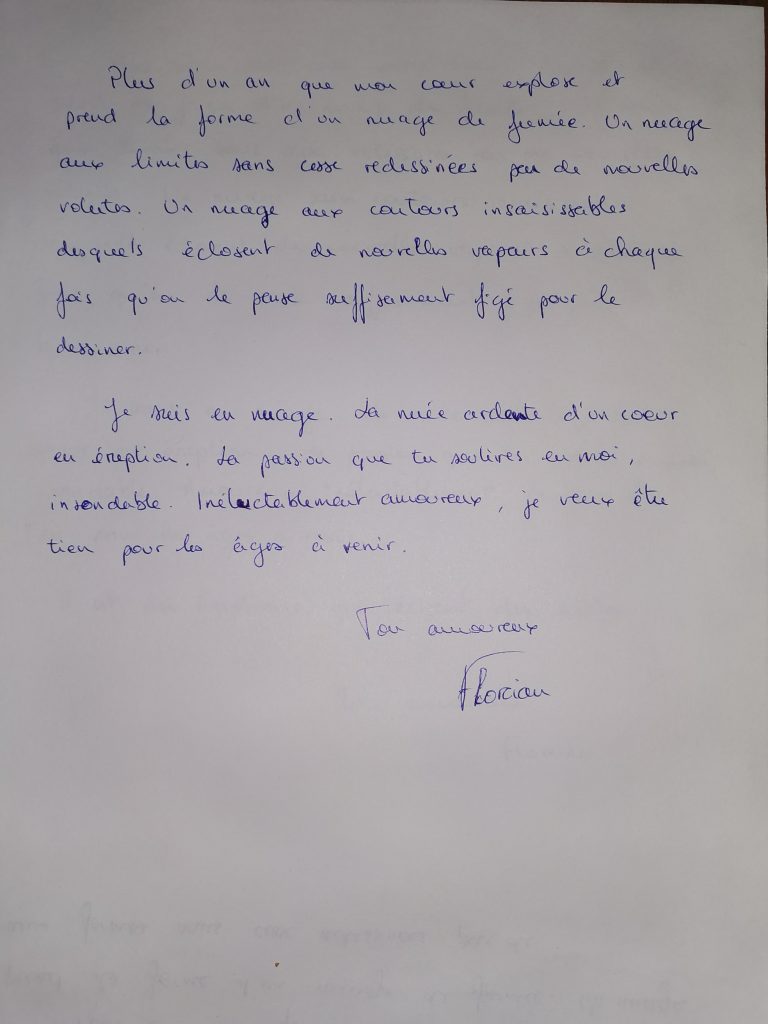 Plus d'un an que mon cœur explose et
prend la forme d'un nuage de fumée. Un nuage
aux limites sans cesse redessinées par de nouvelles
volutes. Un nuage aux contours insaisissables
desquels éclosent de nouvelles vapeurs à chaque
fois qu'on le pense suffisament figé pour le
dessiner.
Je suis en nuage. La nuée ardente d'un coeur
en éruption. La passion que tu soulèves en moi,
insondable. Inéluctablement amoureux, je veux être
tien pour les âges à venir.
Ton amoureux
Florian